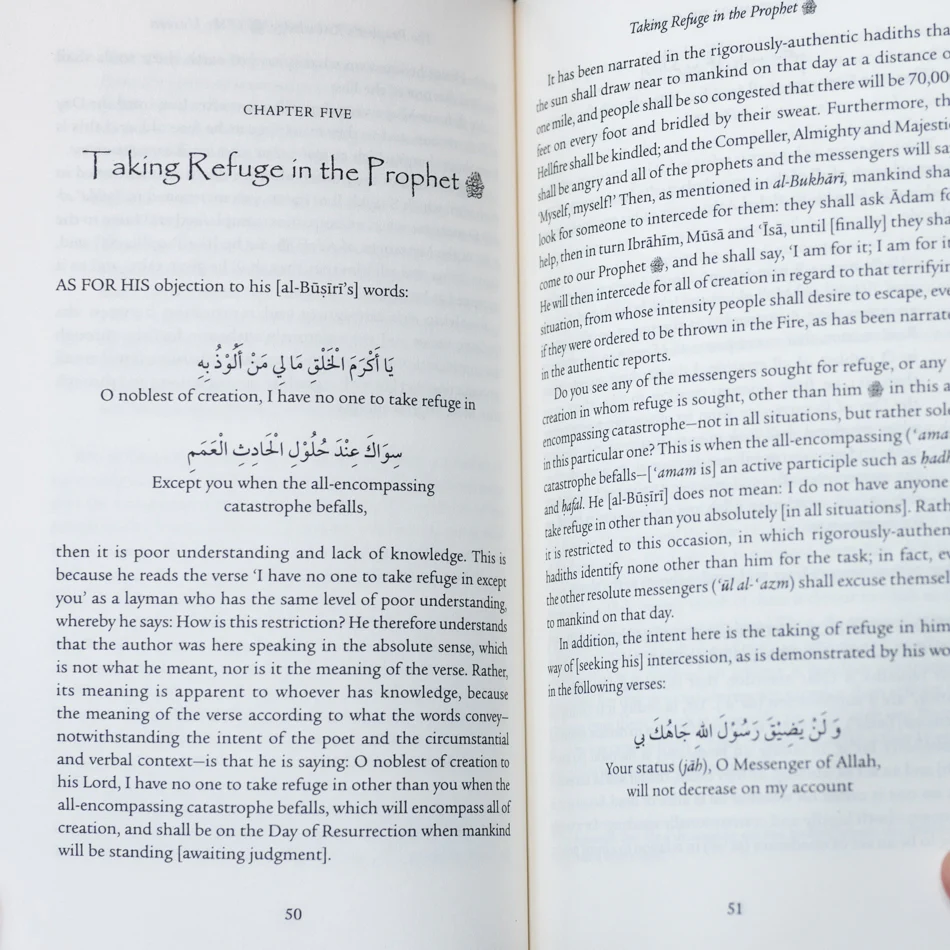 CHAPTER FIVE
Taking Refuge in the Prophet ﷺ
AS FOR HIS objection to his [al-Būṣīrī’s] words:
يَا أَكْرَمَ الْخَلْقِ مَا لِي مَنْ أَلُوْذُ بِهِ
O noblest of creation, I have no one to take refuge in
سِوَاكَ عِنْدَ حُلُوْلِ الْحَادِثِ الْعَمَمِ
Except you when the all-encompassing
catastrophe befalls,
then it is poor understanding and lack of knowledge. This is
because he reads the verse ‘I have no one to take refuge in except
you’ as a layman who has the same level of poor understanding,
whereby he says: How is this restriction? He therefore understands
that the author was here speaking in the absolute sense, which
is not what he meant, nor is it the meaning of the verse. Rather,
its meaning is apparent to whoever has knowledge, because
the meaning of the verse according to what the words convey–
notwithstanding the intent of the poet and the circumstantial
and verbal context—is that he is saying: O noblest of creation to
his Lord, I have no one to take refuge in other than you when the
all-encompassing catastrophe befalls, which will encompass all of
creation, and shall be on the Day of Resurrection when mankind
will be standing [awaiting judgment].
50
Taking Refuge in the Prophet ﷺ
It has been narrated in the rigorously-authentic hadiths tha
the sun shall draw near to mankind on that day at a distance o
one mile, and people shall be so congested that there will be 70,00
feet on every foot and bridled by their sweat. Furthermore, th
Hellfire shall be kindled; and the Compeller, Almighty and Majesti
shall be angry and all of the prophets and the messengers will sa
‘Myself, myself!’ Then, as mentioned in al-Bukhārī, mankind sha
look for someone to intercede for them: they shall ask Ādam fo
help, then in turn Ibrāhīm, Mūsā and ‘Īsā, until [finally] they sha
come to our Prophet ﷺ, and he shall say, ‘I am for it; I am for it
He will then intercede for all of creation in regard to that terrifyin
situation, from whose intensity people shall desire to escape, eve
if they were ordered to be thrown in the Fire, as has been narrate
in the authentic reports.
Do you see any of the messengers sought for refuge, or any
creation in whom refuge is sought, other than him ﷺ in this a
encompassing catastrophe—not in all situations, but rather sole
in this particular one? This is when the all-encompassing (‘ama
catastrophe befalls—[‘amam is] an active participle such as ḥadh
and ḥafal. He [al-Būṣīrī] does not mean: I do not have anyone
take refuge in other than you absolutely [in all situations]. Rath
it is restricted to this occasion, in which rigorously-authen
hadiths identify none other than him for the task; in fact, ev
the other resolute messengers (‘ūl al-‘azm) shall excuse themsel
to mankind on that day.
In addition, the intent here is the taking of refuge in him
way of [seeking his] intercession, as is demonstrated by his wo
in the following verses:
وَ لَنْ يَضِيْقَ رَسُوْلَ اللهِ جَاهُكَ بِي
Your status (jāh), O Messenger of Allah,
will not decrease on my account
51